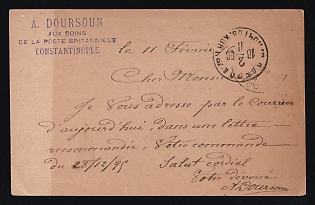 A. DOURSOUN
AUX SOINS
DE LA POSTE BRITANNIQUE
CONSTANTINOPLE
le 11 Février
Cher Monsieur !
Je Vous adresse par le Courrier
d'aujourd'hui, dans une lettre
recommandée, Votre commande
du 28/12/95
Salut cordial
Votre dévoué
A. Doursoun